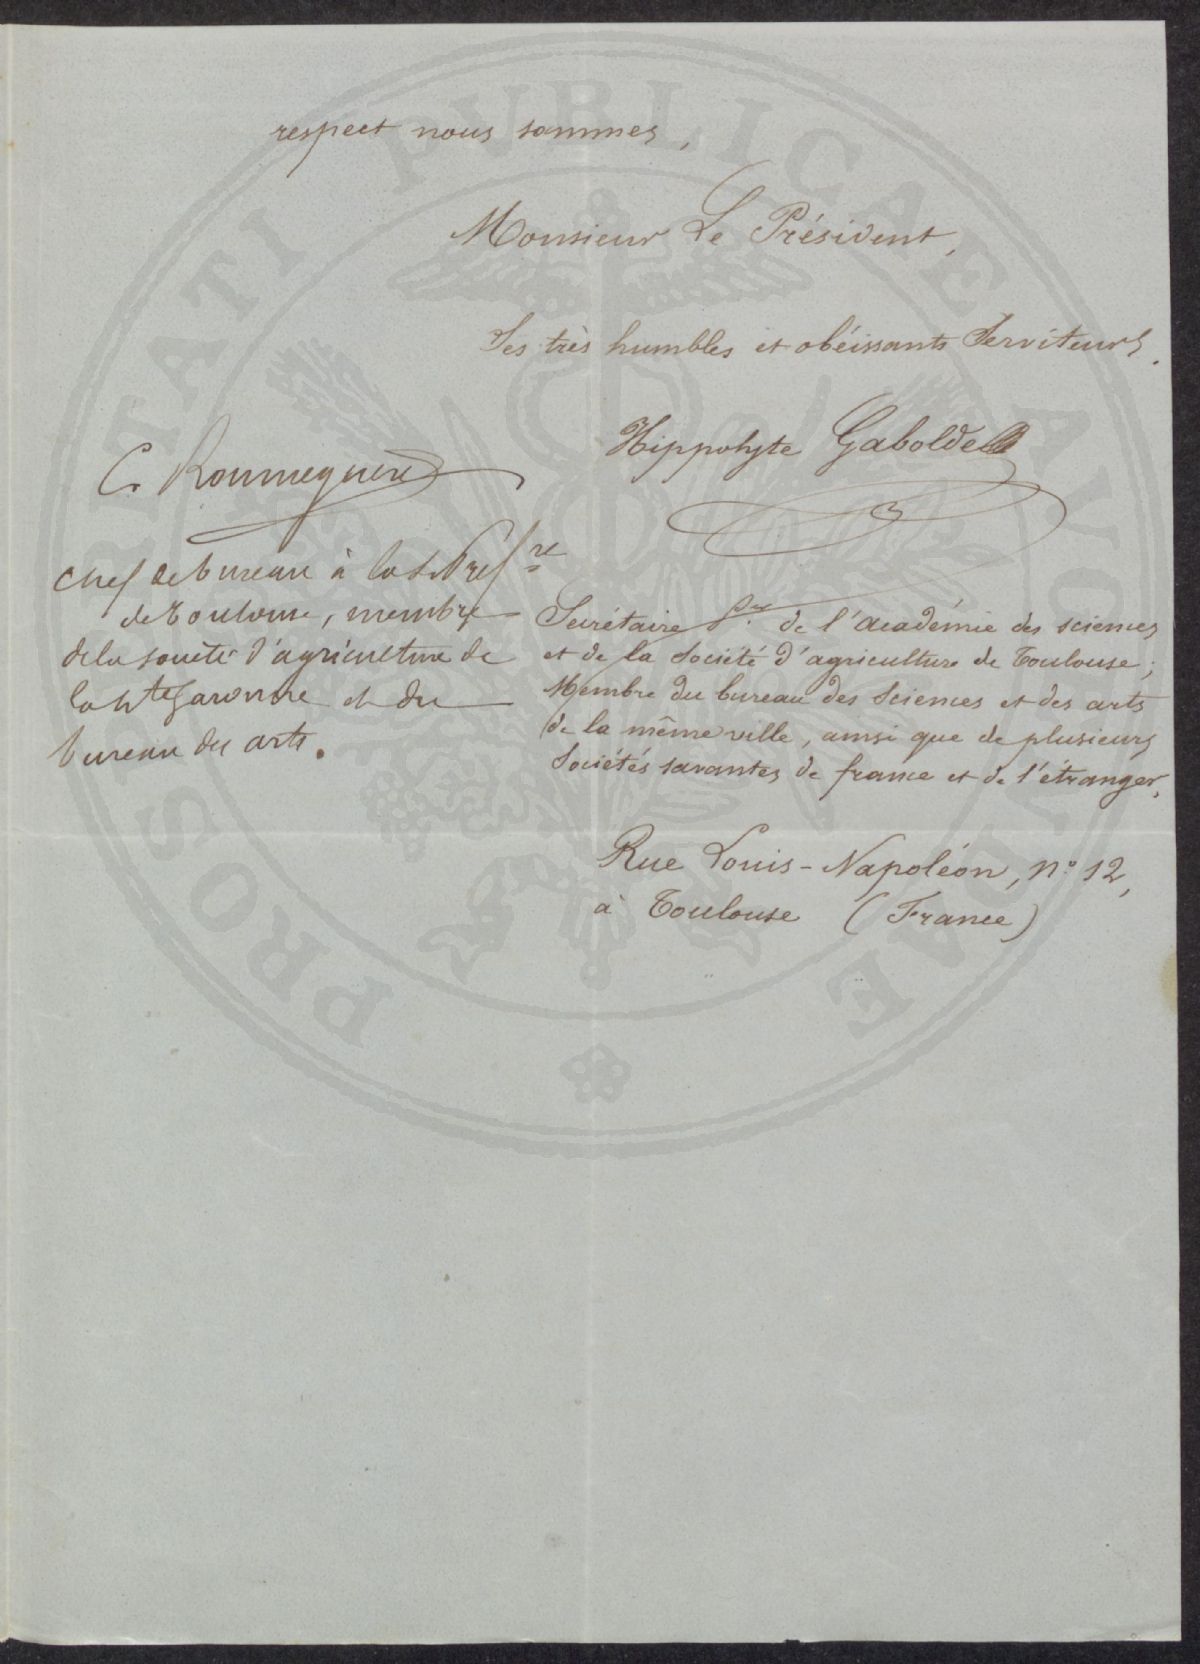 respect nous sommes,
Monsieur Le Président,
Ses très humbles et obéissants Serviteurs.
Hippolyte Gabolde
C. Roumeguère
chef de bureau à la Préfre
de Toulouse, membre
de la société d'agriculture de
la hte Garonne et du
bureau des arts.
Secrétaire de l'académie des sciences
et de la Société d'agriculture de Toulouse;
Membre du bureau des Sciences et des arts
de la même ville, ainsi que de plusieurs
Sociétés savantes de france et de l'étranger,
Rue Louis-Napoléon, n° 12,
à Toulouse (France)
PROSPERITATI PUBLICAE AVGENDAE